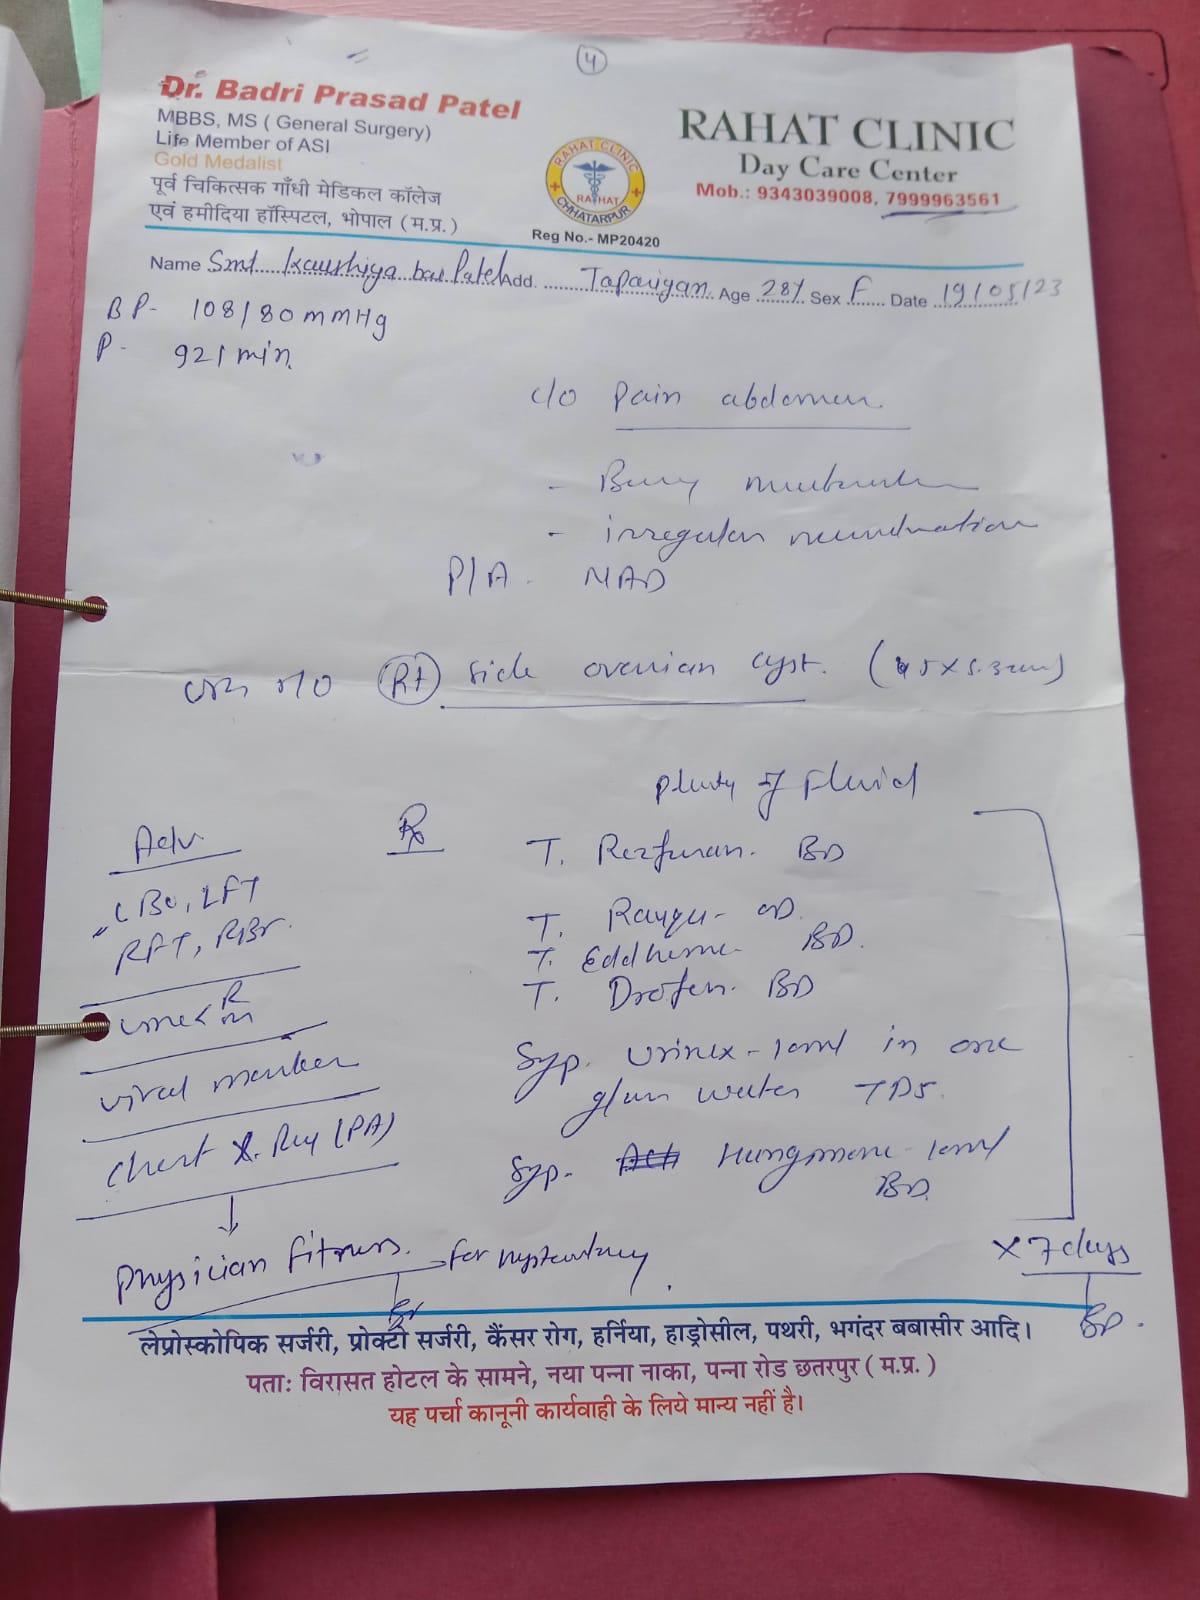 4
Dr. Badri Prasad Patel
MBBS, MS ( General Surgery)
Life Member of ASI
Gold Medalist
पूर्व चिकित्सक गाँधी मेडिकल कॉलेज
एवं हमीदिया हॉस्पिटल, भोपाल (म.प्र.)
RAHAT CLINIC
CHHATARPUR
RAHAT
Reg No.- MP20420
RAHAT CLINIC
Day Care Center
Mob.: 9343039008, 7999963561
Name Smt Kaushiya bai Patel Add. Age 28y Sex F Date 19/05/23
BP- 108/80 mmHg
P- 92/min.
c/o Pain abdomen.
- Burning
- irregular
P/A - NAD
Rt side ovarian cyst.
Plenty of Fluid
Adv
CBC, LFT
RFT, RBS.
Urine R/M
viral marker
Chest X-Ray (PA)
Physician fitness. for
Rx
T. BD
T. OD
T. BD.
T. Drofen. BD
Syp. Urinex - 10ml in one
glass water TDS.
Syp. 10ml
BD.
x 7 days
लेप्रोस्कोपिक सर्जरी, प्रोक्टो सर्जरी, कैंसर रोग, हर्निया, हाड्रोसील, पथरी, भगंदर बबासीर आदि।
पताः विरासत होटल के सामने, नया पन्ना नाका, पन्ना रोड छतरपुर ( म.प्र. )
यह पर्चा कानूनी कार्यवाही के लिये मान्य नहीं है।